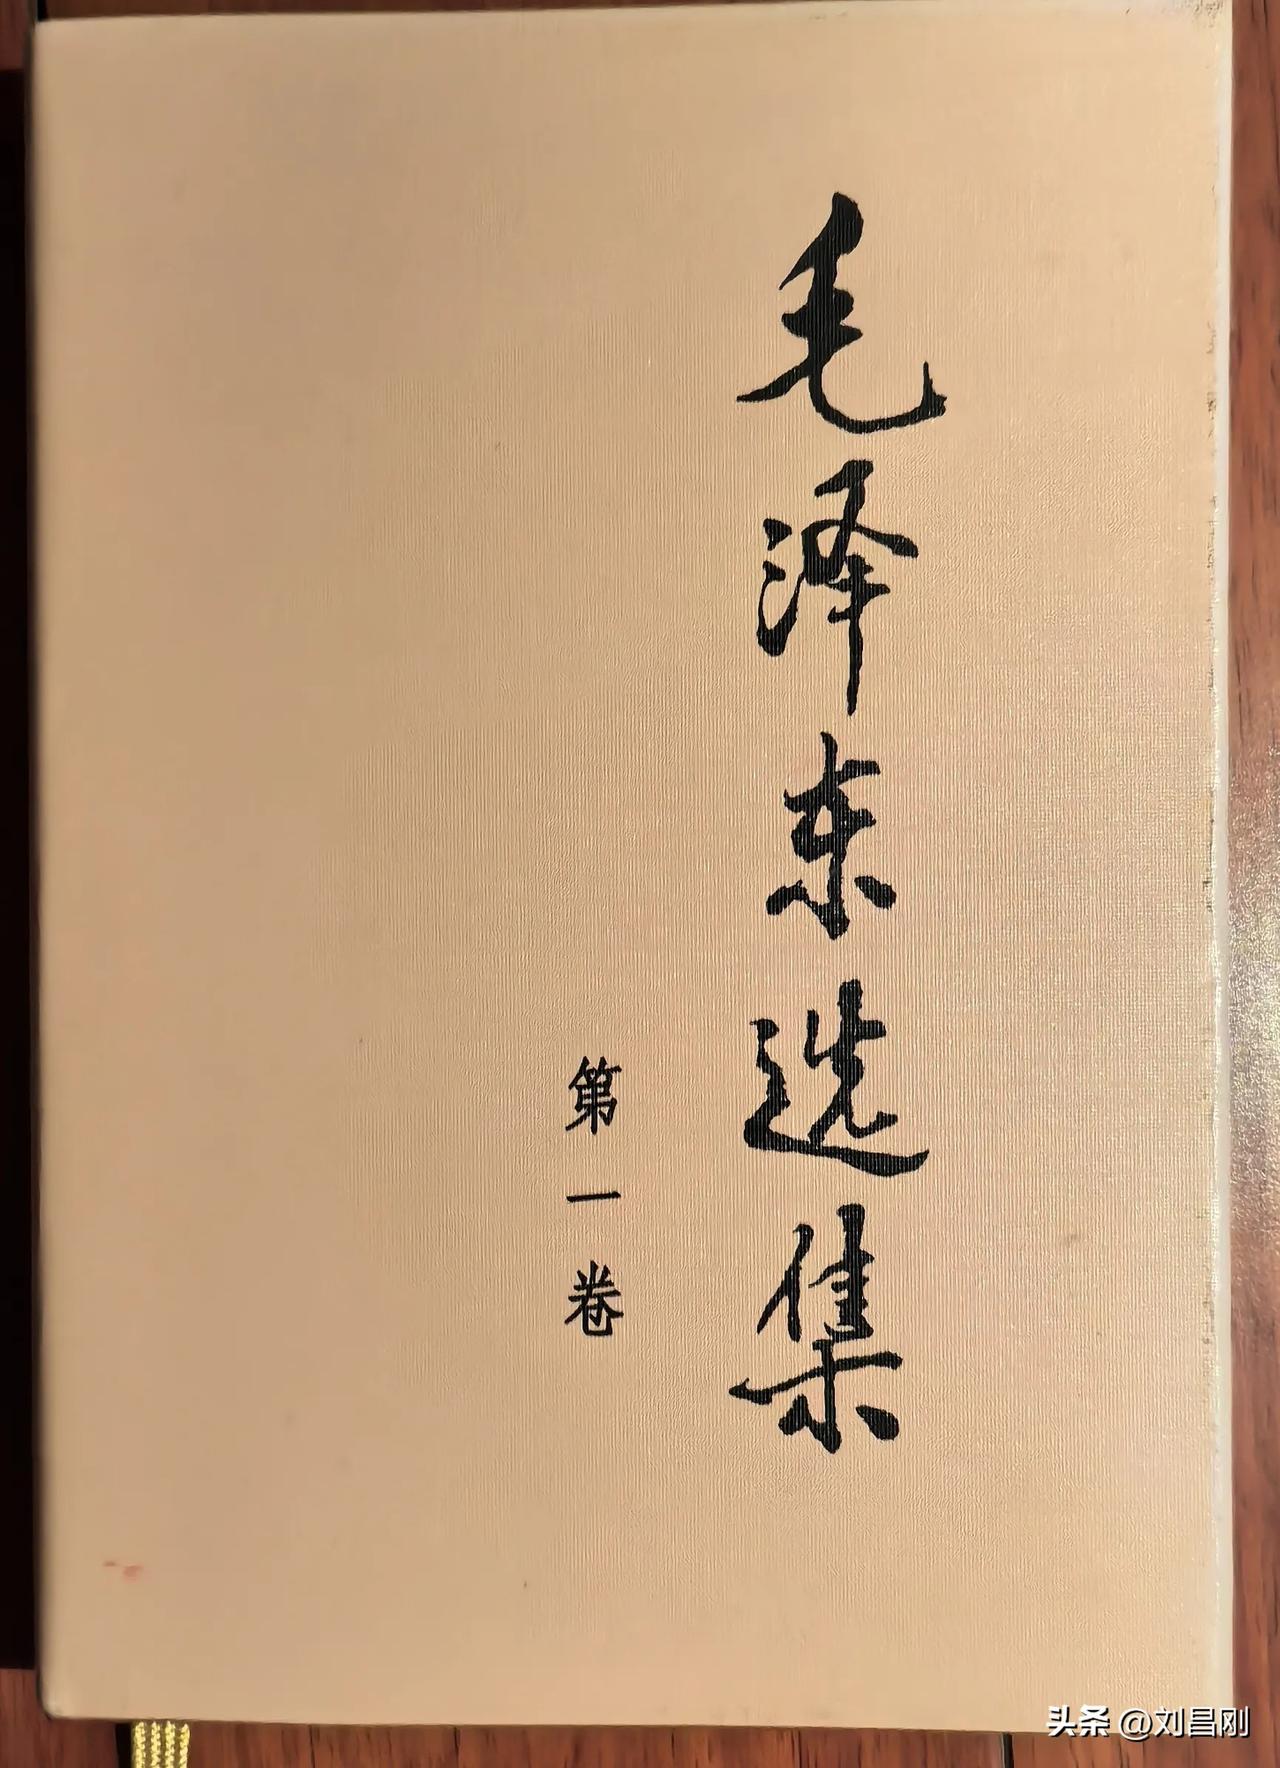 毛泽东选集
第一卷
头条 @刘昌刚